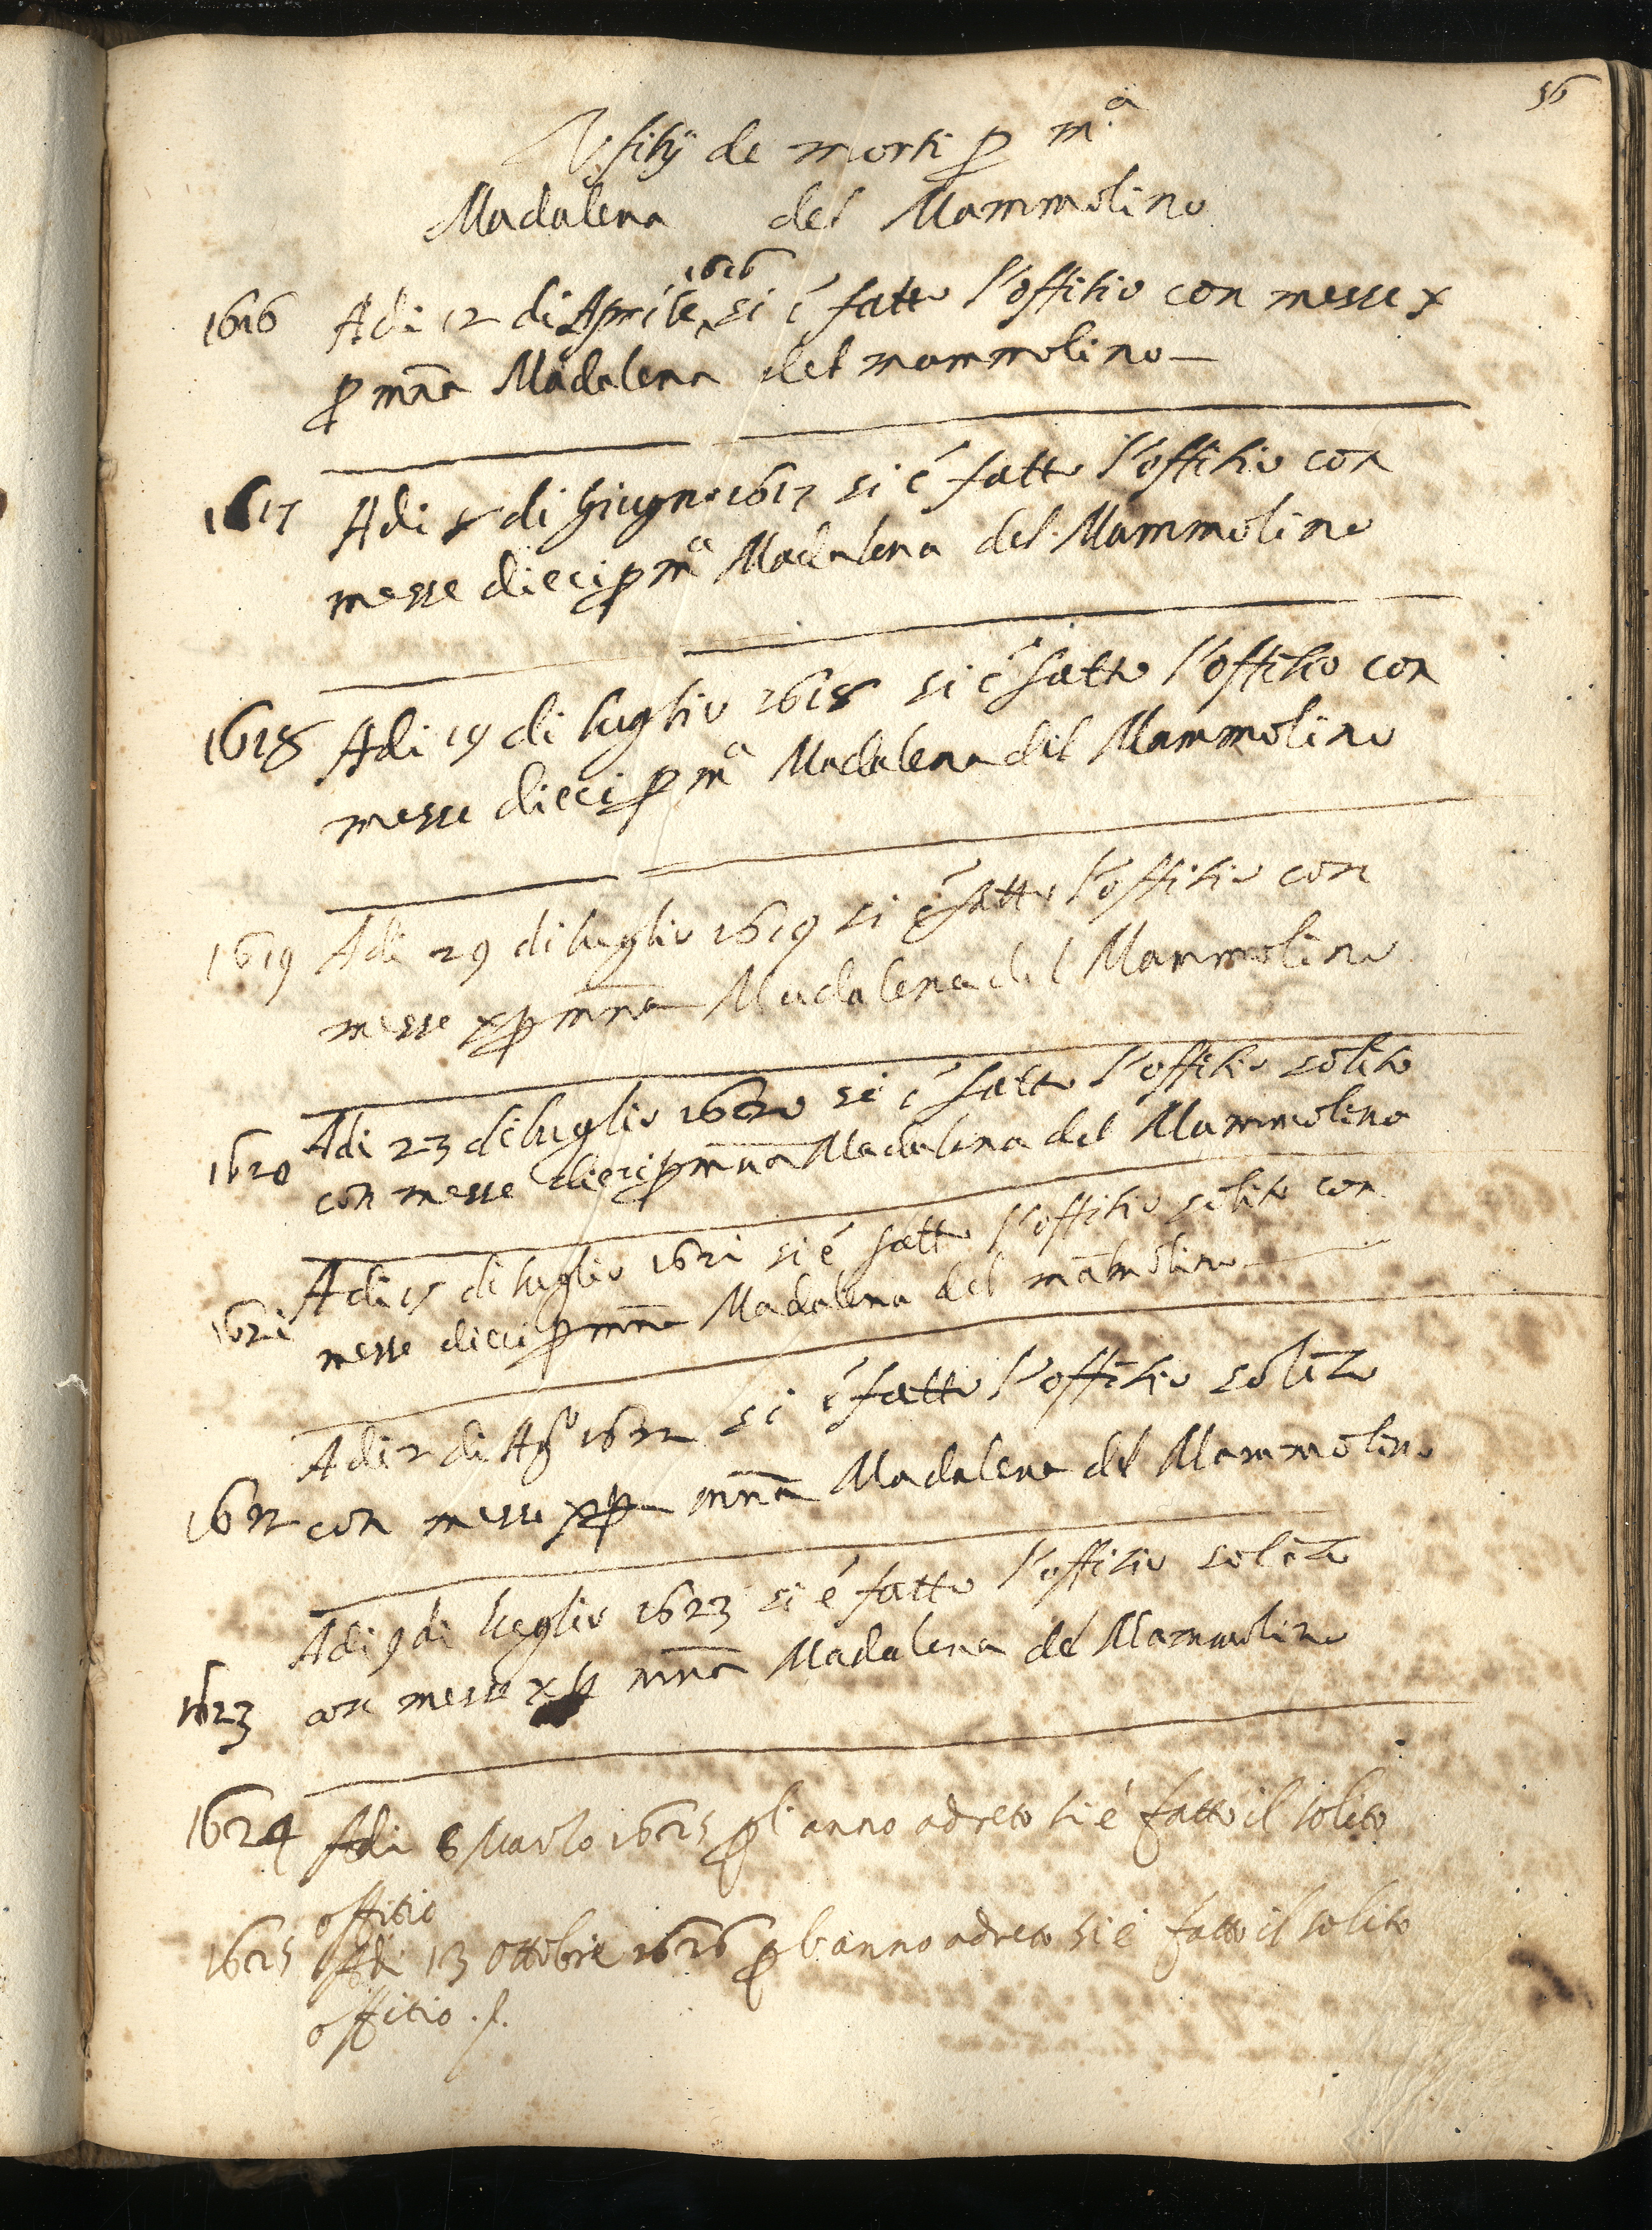 56
Ufitij de morti p m.a
Madalena del Mammolino
1616 Adi 12 di Aprile 1616 si é fatto l'offitio con messe x
p mña Madalena del mammolino
1617 Adi di giugno 1617 si é fatto l'offitio con
messe dieci p ma Madalena del Mammolino
1618 Adi 19 di luglio 1618 si é fatto l'offitio con
messe dieci p ma Madalena del Mammolino
1619 Adi 29 di luglio 1619 si é fatto l'offitio con
messe x p mña Madalena del Mammolino
Adi 23 di luglio 1620 si é fatto l'offitio solito
1620 con messe dieci p mña Madalena del Mammolino
Adi 15 di luglio 1621 si é fatto l'offitio solito con
1621 messe dieci p mña Madalena del mãmolino
Adi 2 di Ago 1622 si é fatto l'offitio solito
1622 con messe x p mña Madalena del Mammolino
Adi 9 di luglio 1623 si é fatto l'offitio solito
1623 con messe x p mña Madalena del Mammolino
1624 Adi 8 Marzo 1625 p l'anno adreto si é fatto il solito
offitio
1625 Adi 13 Ottobre 1626 p l'anno adreto si é fatto il solito
offitio